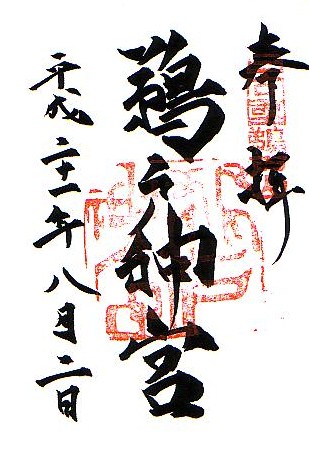 奉拝
鵜戸神宮
平成二十一年八月二日